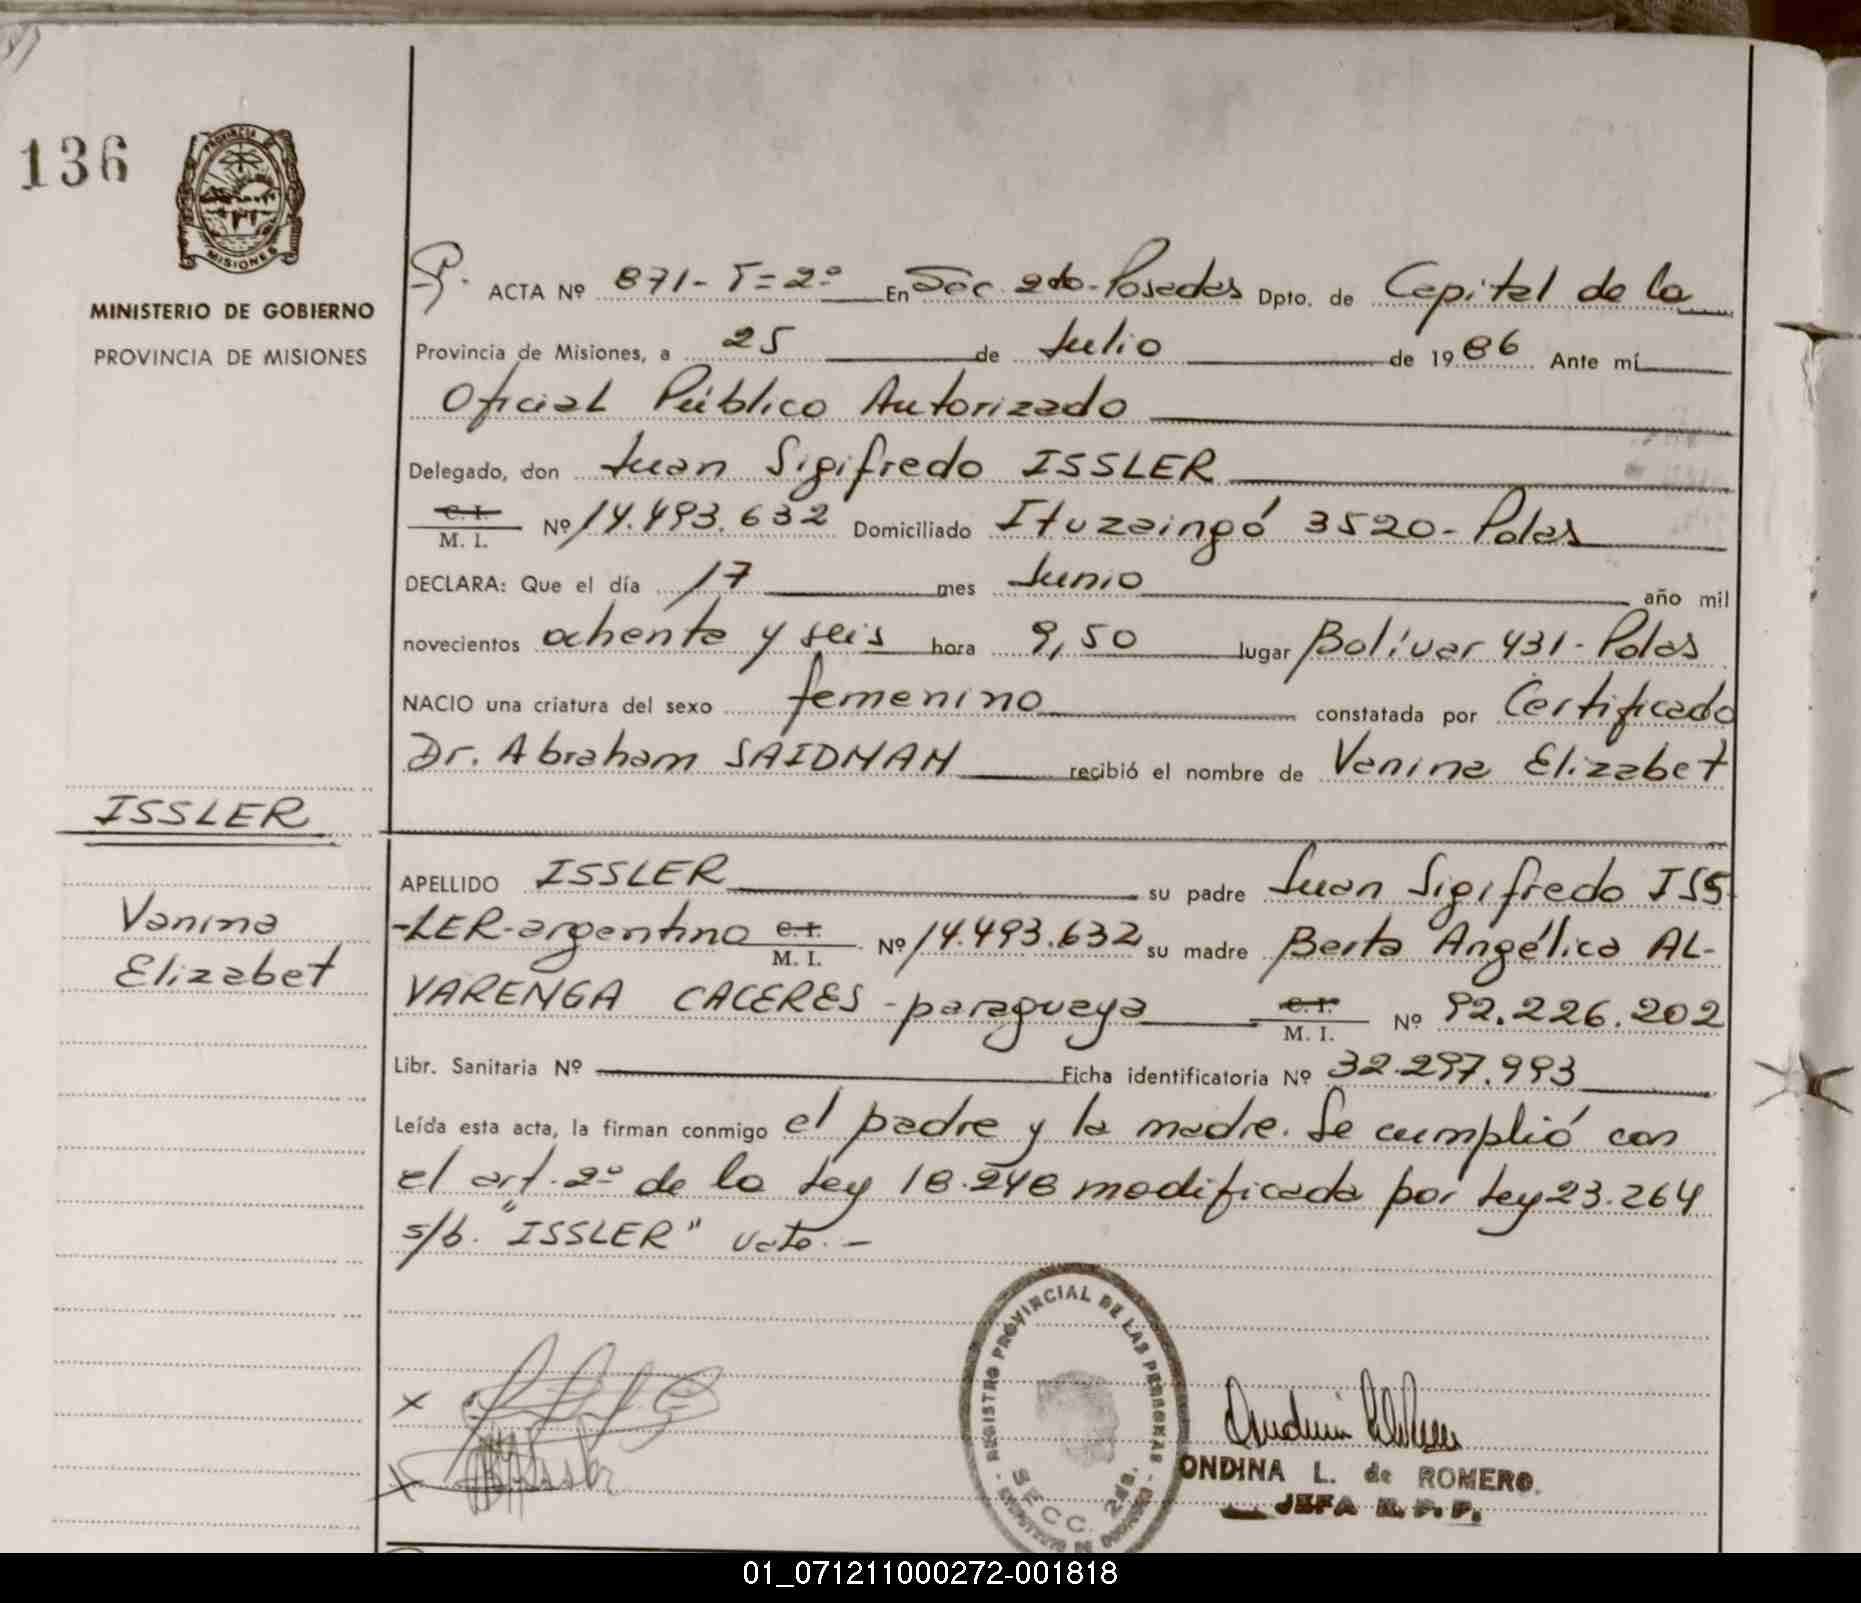 136
PROVINCIA DE
MISIONES
MINISTERIO DE GOBIERNO
PROVINCIA DE MISIONES
ACTA Nº 871- T=2º En Sec 2do-Posadas Dpto. de Capital de la
Provincia de Misiones, a 25 de Julio de 1986 Ante mí
Oficial Público Autorizado
Delegado, don Juan Sigifredo ISSLER
C.I. M. I. Nº 14.493.632 Domiciliado Ituzaingó 3520-Pdas
DECLARA: Que el día 17 mes Junio año mil
novecientos ochenta y seis hora 9,50 lugar Bolívar 431-Pdas
NACIO una criatura del sexo femenino constatada por Certificado
Dr. Abraham SAIDMAN recibió el nombre de Vanina Elizabet
ISSLER
Vanina
Elizabet
APELLIDO ISSLER su padre Juan Sigifredo ISS
-LER-argentino C.I. M. I. Nº 14.493.632 su madre Berta Angélica AL-
VARENGA CACERES-paraguaya C.I. M. I. Nº 92.226.202
Libr. Sanitaria Nº Ficha identificatoria Nº 32.297.993
Leída esta acta, la firman conmigo el padre y la madre. Se cumplió con
el art. 2º de la Ley 18.248 modificada por Ley 23.264
s/b. "ISSLER" Vale.-
REGISTRO PROVINCIAL DE LAS PERSONAS
SECC. 2da.
ONDINA L. de ROMERO.
JEFA R. P. P.
01_071211000272-001818